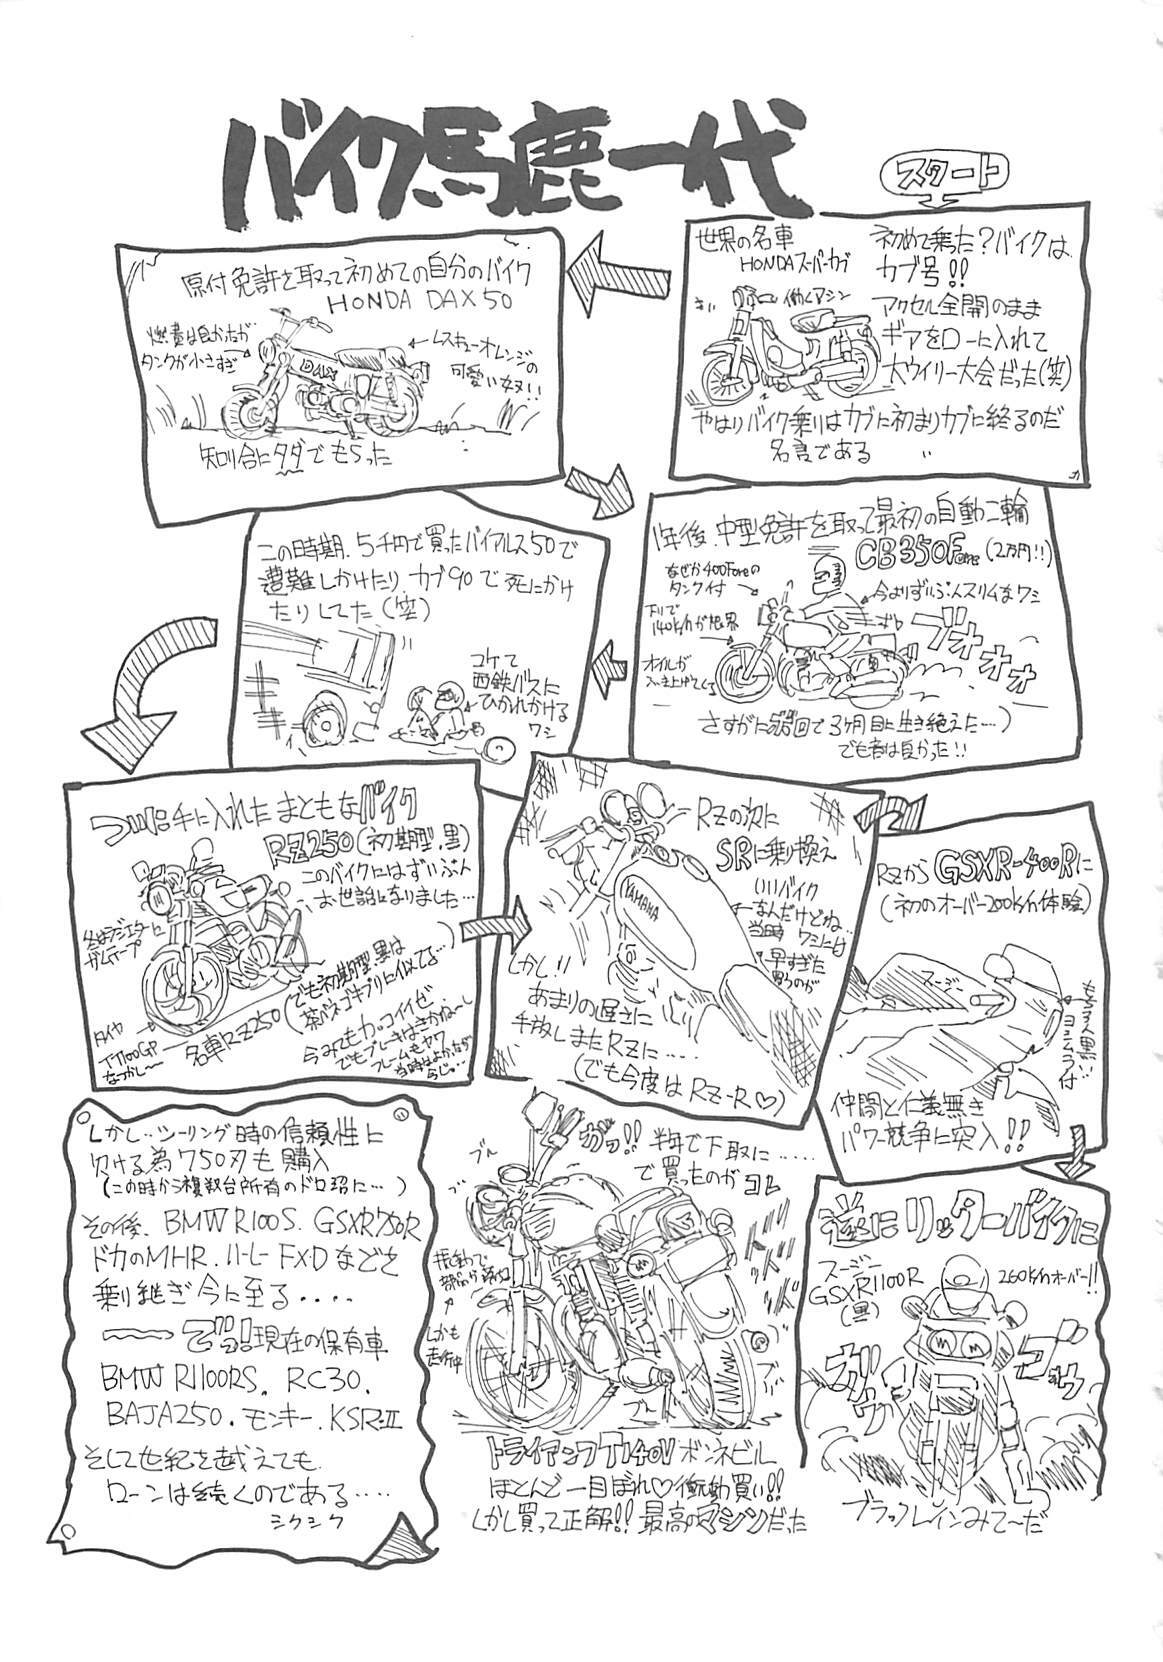 バイク馬鹿一代
スタート
世界の名車
HONDAスーパーカブ
初めて乗た?バイクは
カブ号!!
働くマシン
アクセル全開のまま
ギアをローに入れて
大ウイリー大会だった(笑)
やはりバイク乗りはカブに初まりカブに終るのだ
名言である
原付免許を取って初めての自分のバイク
HONDA DAX50
燃費は良かったが
タンクが小さすぎ
レスキューオレンジの
可愛い奴!!
DAX
知り合にタダでもらった
1年後、中型免許を取って最初の自動二輪
CB350Four(2万円!!)
なぜか400Fourの
タンク付
今よりずいぶんスリムなワシ
下りで
140k/hが限界
ブオォォォ
オイルが
さすがに
3ヶ月目に生き絶えた…)
でも音は良かった!!
この時期、5千円で買ったバイアルス50で
遭難しかけたり、カブ90で死にかけ
たりしてた(笑)
コケて
西鉄バスに
ひかれかける
ワシ
手に入れたまともなバイク
RZ250(初期型、黒)
このバイクにはずいぶん
お世話になりました…
ガムテープ
タイヤ
TT100GP
なつかし〜
名車RZ250
(でも初期型黒は
茶バネゴキブリに似てる…)
今みてもカッコイイぜ
でもブレーキはきかね〜し
フレームもヤワ
RZの次に
SRに乗り換え
いいバイク
なんだけどね…
当時ワシには
早すぎた
YAMAHA
しかし!!
あまりの遅さに
手放しまたRZに……
(でも今度はRZ-R♡)
RZからGSXR-400Rに
(初のオーバー200k/h体験)
スージー
ヨシムラ付
仲間と仁義無き
パワー競争に突入!!
遂にリッターバイクに
スージー
GSXR1100R
(黒)
260k/hオーバー!!
ゴォゥ
ブラックレインみて〜だ
半年で下取に……
で買ったのがコレ
ブル
ブ
振動で
しかも
走行中
ドドド
トライアンフT140Vボンネビル
ほとんど一目ぼれ♡衝動買い!!
しかし買って正解!!最高のマシンだった
しかし…ツーリング時の信頼性に
欠ける為750刃も購入
(この時から複数台所有のドロ沼に…)
その後、BMW R100S、GSXR750R
ドカのMHR、ハーレーFXDなどを
乗り継ぎ今に至る・・・・
現在の保有車
BMW R1100RS、RC30、
BAJA250、モンキー、KSR-II
そして世紀を越えても
ローンは続くのである……
シクシク